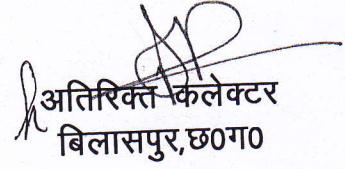 अतिरिक्त कलेक्टर
बिलासपुर,छ0ग0